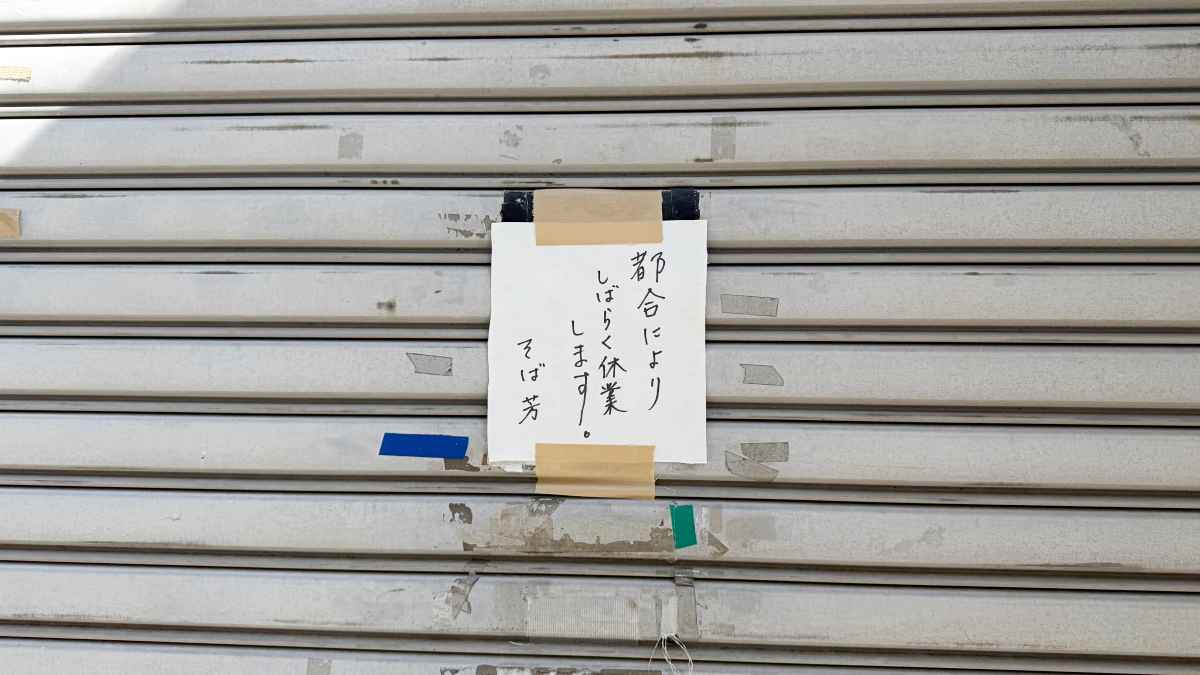 都合により
しばらく休業
します。
そば芳